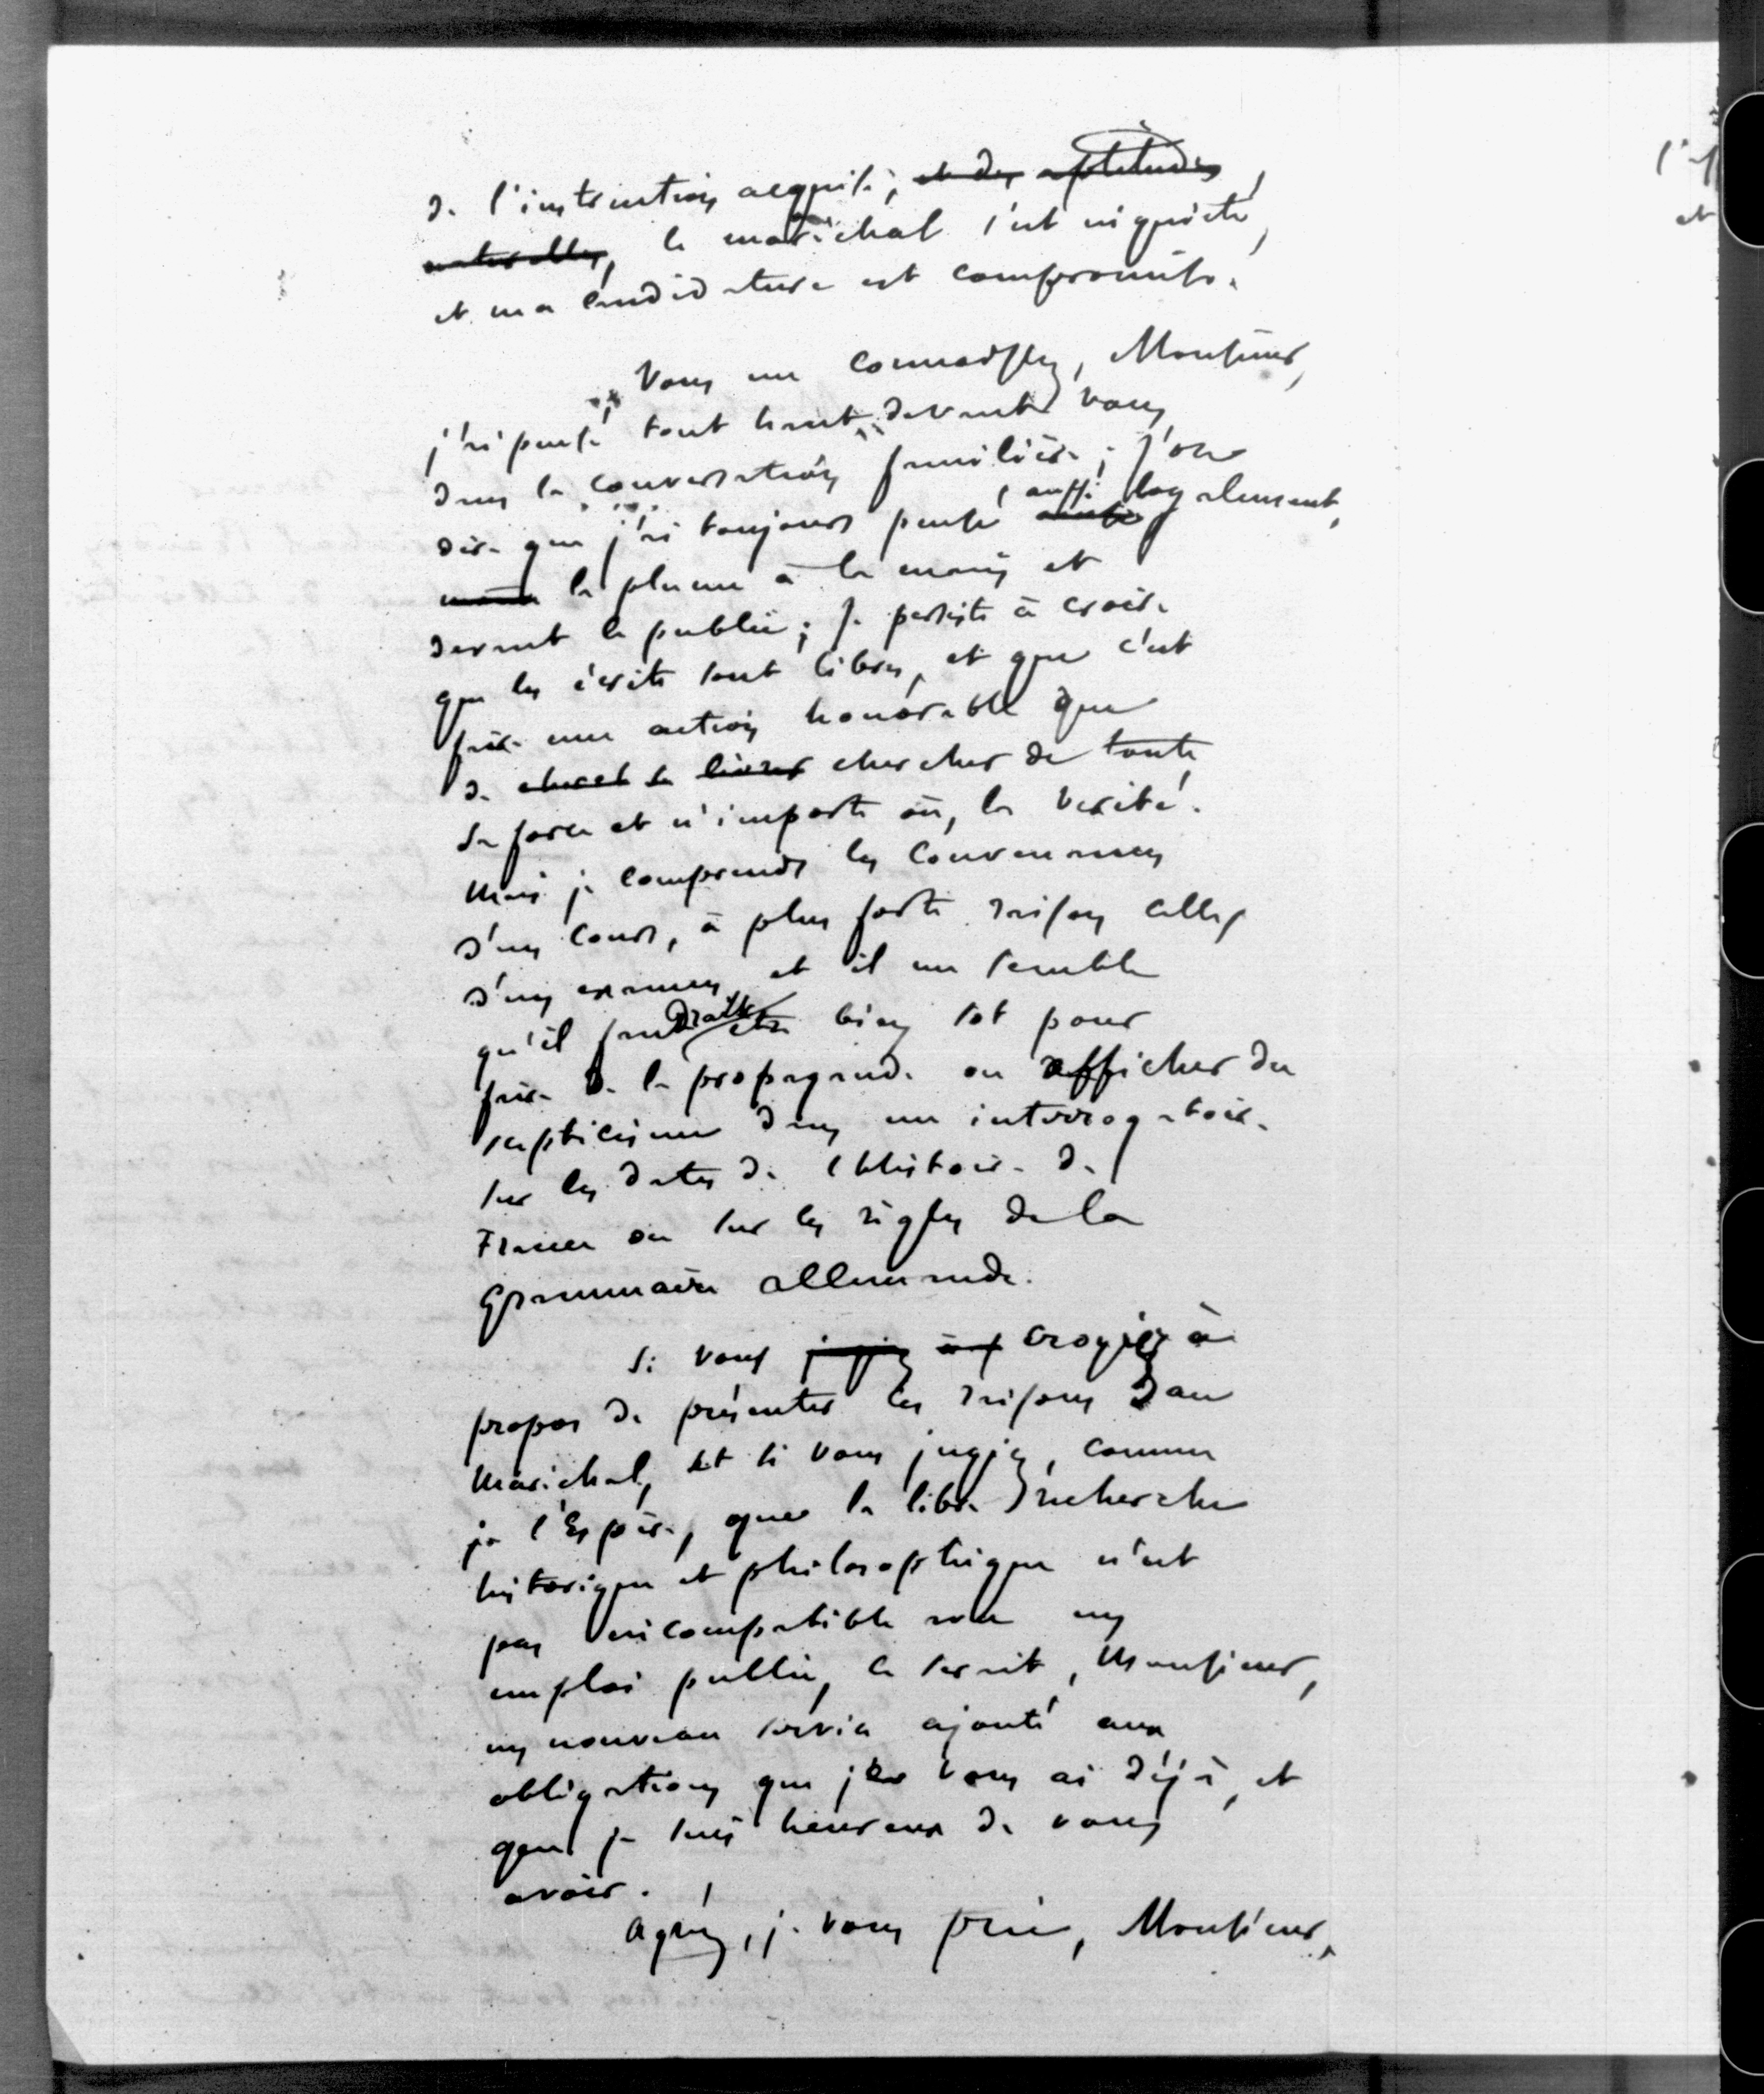 de l'instruction acquise, et des aptitudes
naturelles, le maréchal s'est inquiété,
et ma candidature est compromise.
Vous me connaissez, Monsieur,
j'ai pensé tout haut devant vous
dans la conversation familière ; j'ose
dire que j'ai toujours pensé aussi loyalement,
la plume à la main et
devant le public ; je persiste à croire
que les écrits sont libres, et que c'est
faire une action honorable que
de chercher de toute
sa force et n'importe où, la vérité.
Mais je comprends les convenances
d'un cours, à plus forte raison celles
d'un examen, et il me semble
qu'il faudrait être bien sot pour
faire de la propagande ou afficher du
scepticisme dans un interrogatoire
sur les dates de l'Histoire de
France ou sur les règles de la
Grammaire allemande.
Si vous jugiez croyiez à
propos de présenter ces raisons au
Maréchal, et si vous jugiez, comme
je l'espère, que la libre recherche
historique et philosophique n'est
pas incompatible avec un
emploi public, ce serait, Monsieur,
un nouveau service ajouté aux
obligations que je vous ai déjà, et
que je suis heureux de vous
avoir.
Agréez, je vous prie, Monsieur,